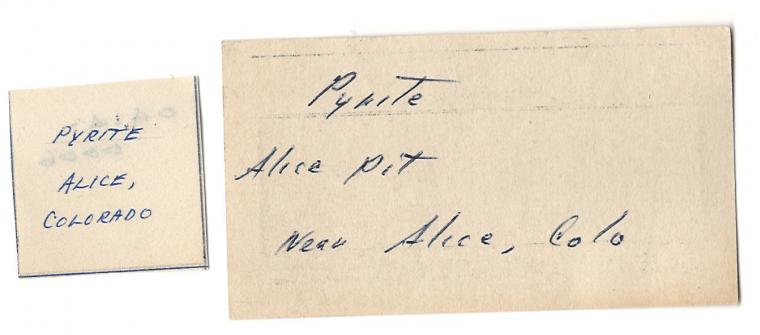 PYRITE
ALICE,
COLORADO
Pyrite
Alice pit
Near Alice, Colo